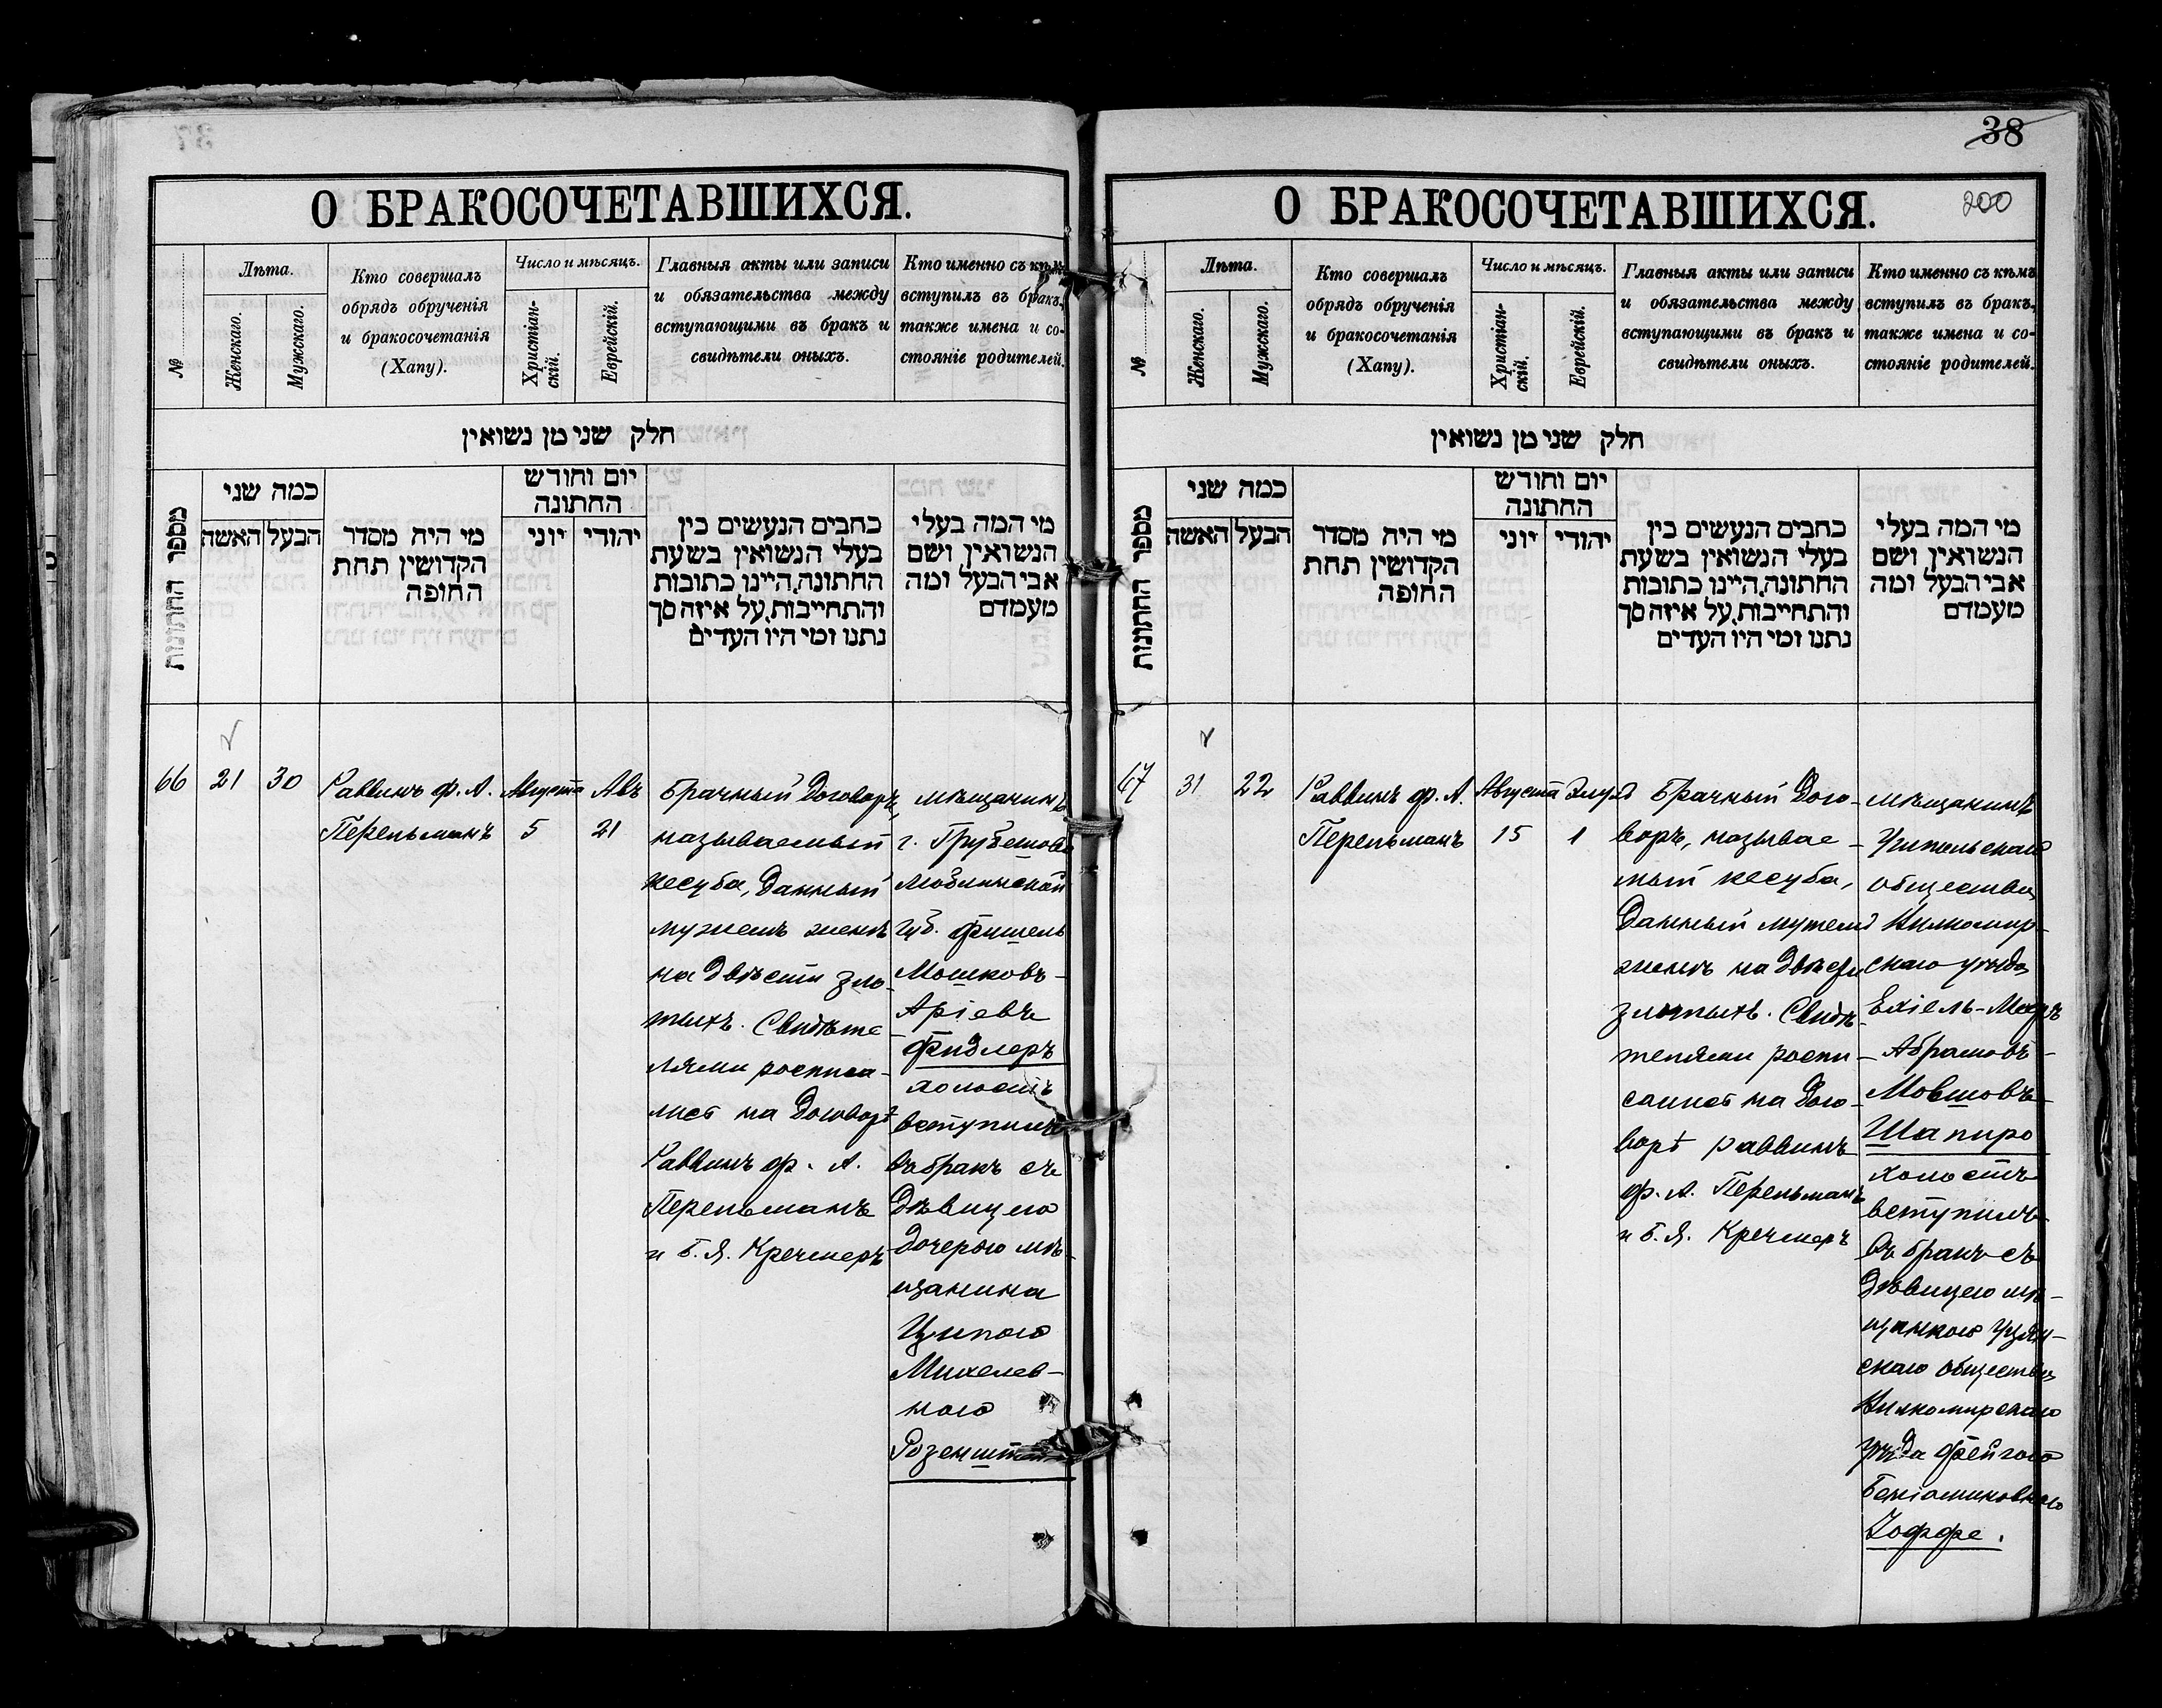 О БРАКОСОЧЕТАВШИХСЯ.
№
Лѣта.
Женскаго.
Мужскаго.
Кто совершалъ
обрядъ обрученія
и бракосочетанія
(Хапу).
Число и мѣсяцъ.
Христіан-
скій.
Еврейскій.
Главныя акты или записи
и обязательства между
вступающими въ бракъ и
свидѣтели оныхъ.
Кто именно съ кѣмъ
вступилъ въ бракъ,
также имена и со-
стояніе родителей.
חלק שני מן נשואין
מספר החתונות
כמה שני
האשה
הבעל
מי היה מסדר
הקדושין תחת
החופה
יום וחודש
החתונה
יוני
יהודי
כתבים הנעשים בין
בעלי הנשואין בשעת
החתונה, היינו כתובות
והתחייבות, על איזה סך
נתנו ומי היו העדים
מי המה בעלי
הנשואין ושם
אבי הבעל ומה
מעמדם
66
21
30
Раввинъ Ф. А.
Перельманъ
Августа
5
Авъ
21
Брачный договоръ,
называемый
кесуба, данный
мужемъ женѣ
на двѣсти зло-
тыхъ. Свидѣте-
лями росписа-
лись на договорѣ
Раввинъ Ф. А.
Перельманъ
и Б. Я. Кречмеръ
мѣщанинъ
г. Грубешова
Люблинской
губ. Фишель
Мошковъ-
Аріевъ
Фидлеръ
холостъ
вступилъ
въ бракъ съ
дѣвицею
дочерью мѣ-
щанина
Ципою
Михелев-
ною
Розенштейнъ
38
200
О БРАКОСОЧЕТАВШИХСЯ.
№
Лѣта.
Женскаго.
Мужскаго.
Кто совершалъ
обрядъ обрученія
и бракосочетанія
(Хапу).
Число и мѣсяцъ.
Христіан-
скій.
Еврейскій.
Главныя акты или записи
и обязательства между
вступающими въ бракъ и
свидѣтели оныхъ.
Кто именно съ кѣмъ
вступилъ въ бракъ,
также имена и со-
стояніе родителей.
חלק שני מן נשואין
מספר החתונות
כמה שני
האשה
הבעל
מי היה מסדר
הקדושין תחת
החופה
יום וחודש
החתונה
יוני
יהודי
כתבים הנעשים בין
בעלי הנשואין בשעת
החתונה, היינו כתובות
והתחייבות, על איזה סך
נתנו ומי היו העדים
מי המה בעלי
הנשואין ושם
אבי הבעל ומה
מעמדם
67
31
22
Раввинъ Ф. А.
Перельманъ
Августа
15
Элулъ
1
Брачный дого-
воръ, называе-
мый кесуба,
данный мужемъ
женѣ на двѣсти
злотыхъ. Свидѣ-
телями роспи-
сались на дого-
ворѣ раввинъ
Ф. А. Перельманъ
и Б. Я. Кречмеръ
мѣщанинъ
общества
Вилкомир-
скаго уѣзда
Ехіель-Мееръ
Абрамовъ-
Мовшовъ
Шапиро
холостъ
вступилъ
въ бракъ съ
дѣвицею мѣ-
щанкою Уцян-
скаго общества
Вилкомирскаго
уѣзда Фейгою
Беніаминовною
Іоффе.